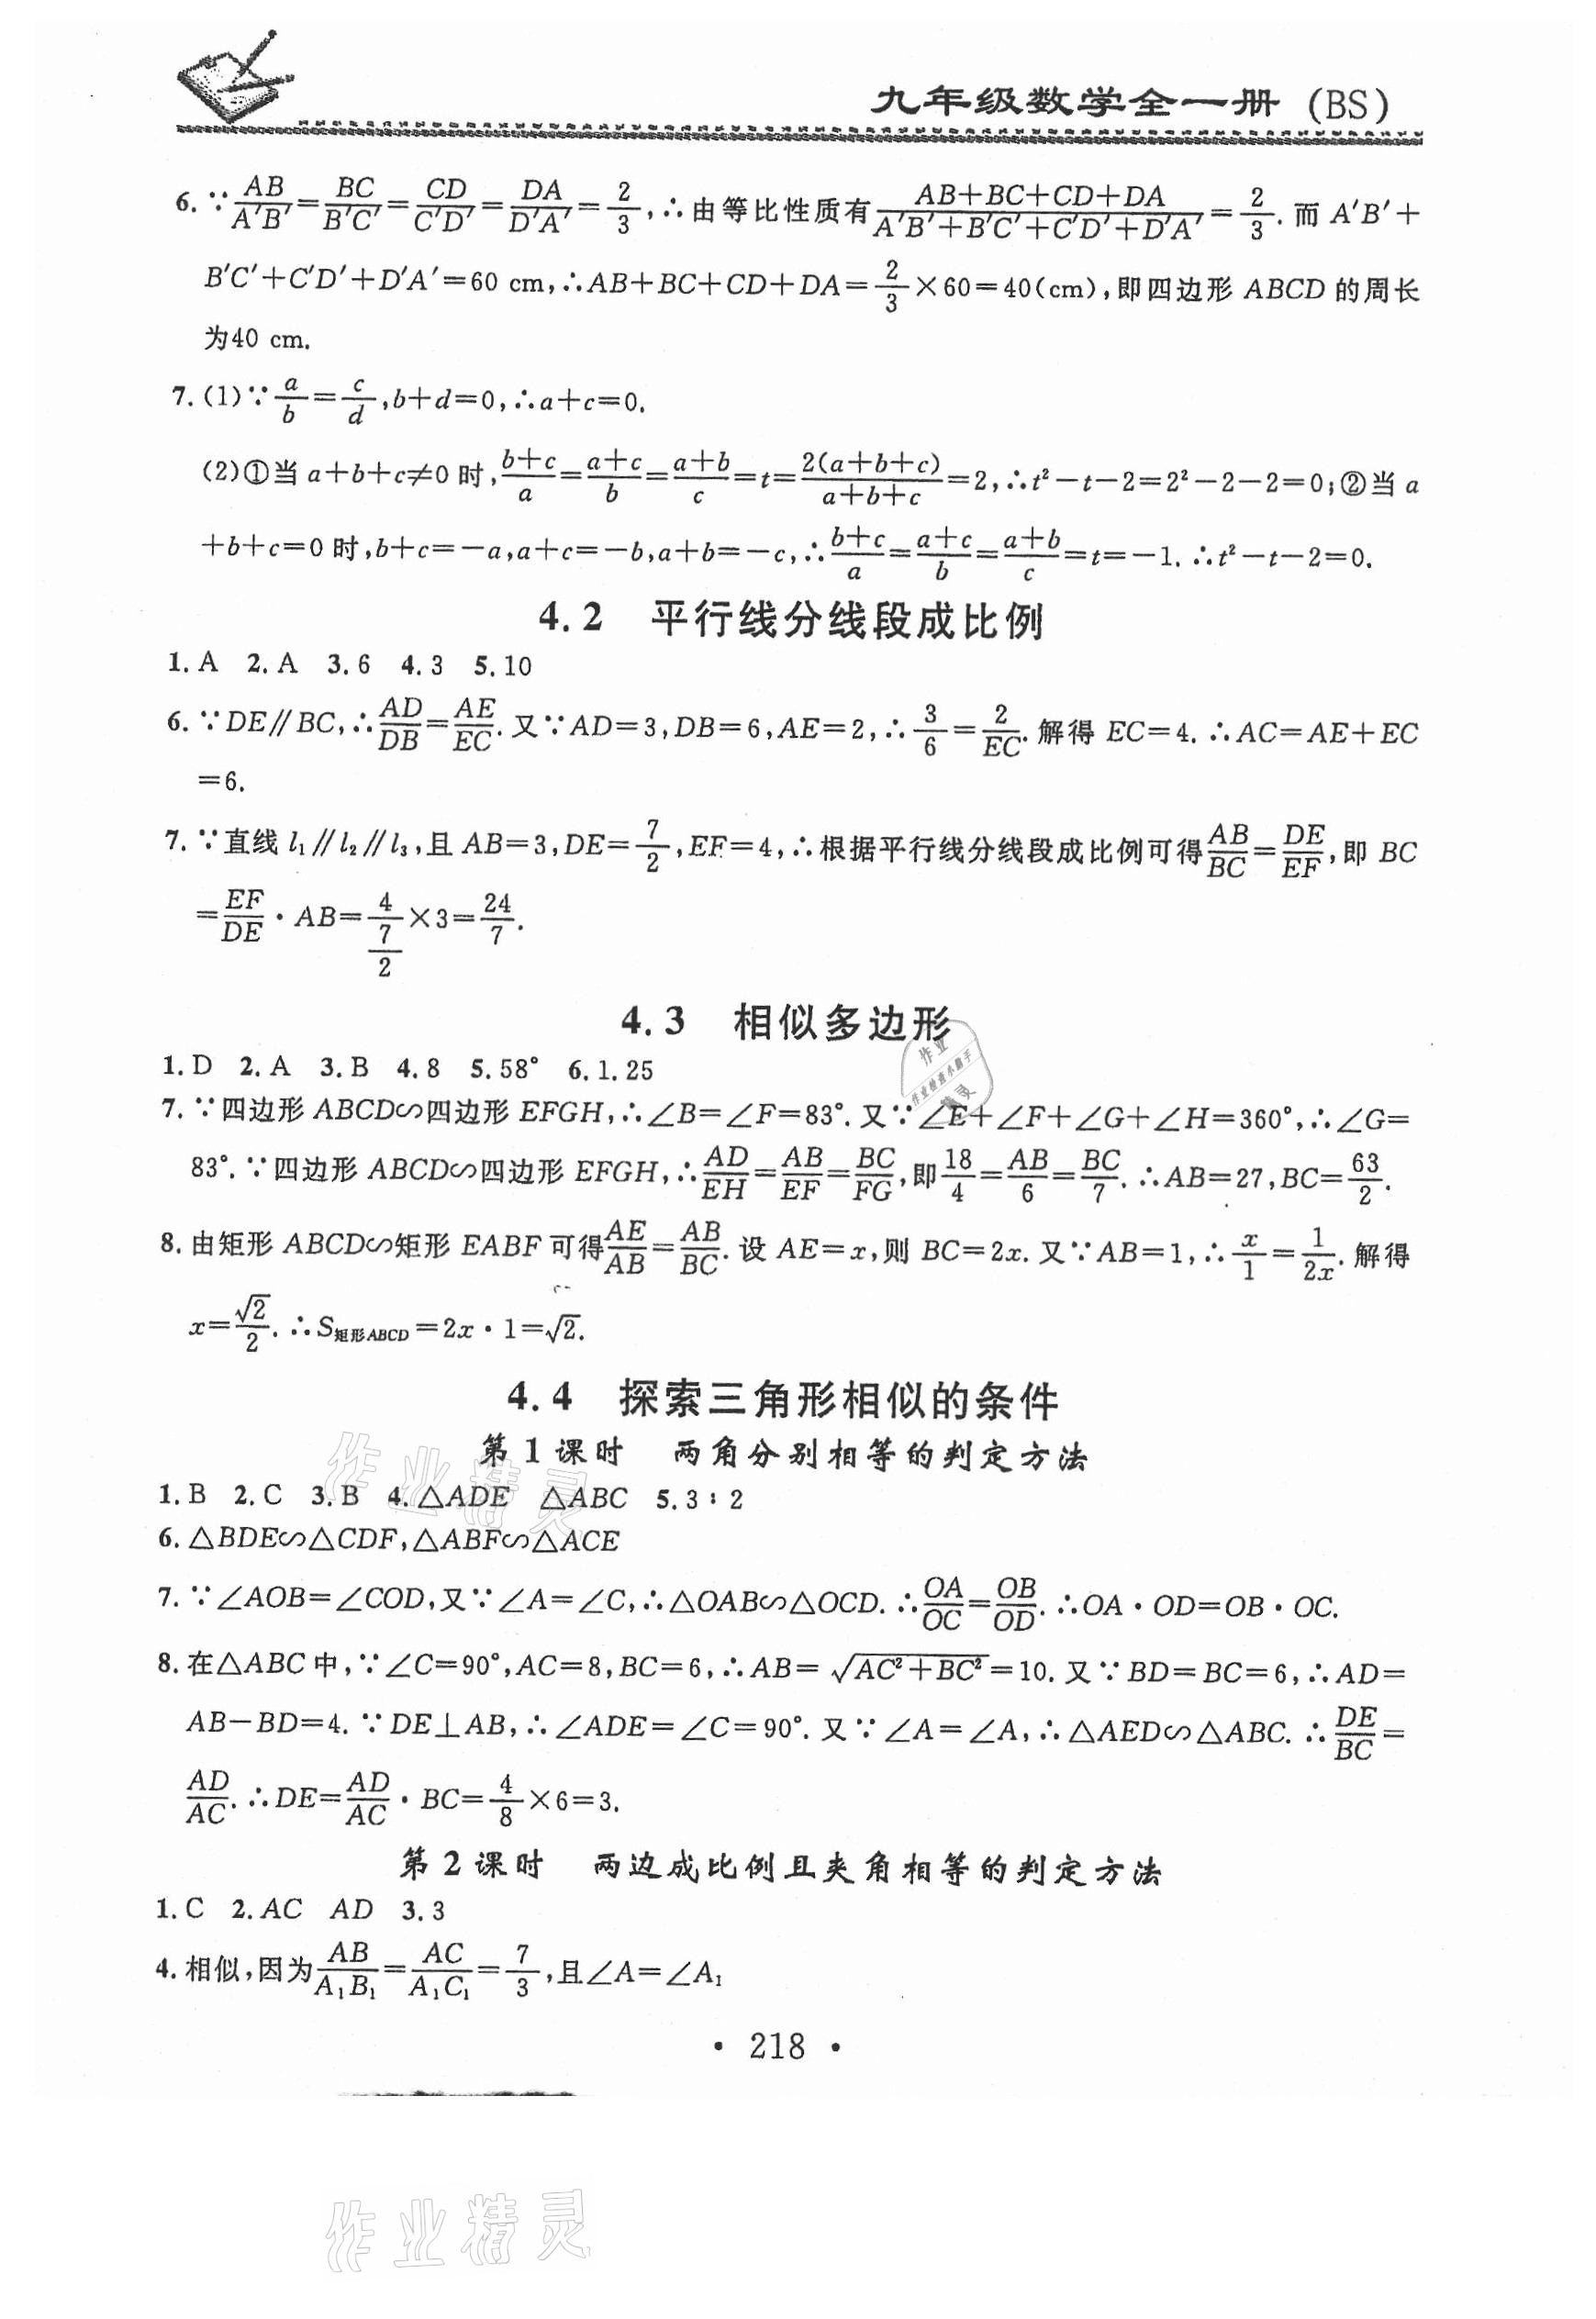 九年级数学全一册 (BS)
6. ∵AB/A′B′=BC/B′C′=CD/C′D′=DA/D′A′=2/3,∴由等比性质有(AB+BC+CD+DA)/(A′B′+B′C′+C′D′+D′A′)=2/3.而 A′B′+
B′C′+C′D′+D′A′=60 cm,∴AB+BC+CD+DA=2/3×60=40(cm),即四边形 ABCD 的周长
为40 cm.
7. (1)∵a/b=c/d,b+d=0,∴a+c=0.
(2)①当 a+b+c≠0 时,(b+c)/a=(a+c)/b=(a+b)/c=t=2(a+b+c)/(a+b+c)=2,∴t²-t-2=2²-2-2=0;②当 a
+b+c=0 时,b+c=-a,a+c=-b,a+b=-c,∴(b+c)/a=(a+c)/b=(a+b)/c=t=-1. ∴t²-t-2=0.
4.2 平行线分线段成比例
1. A 2. A 3. 6 4. 3 5. 10
6. ∵DE∥BC,∴AD/DB=AE/EC.又∵AD=3,DB=6,AE=2,∴3/6=2/EC.解得 EC=4. ∴AC=AE+EC
=6.
7. ∵直线 l₁∥l₂∥l₃,且 AB=3,DE=7/2,EF=4,∴根据平行线分线段成比例可得AB/BC=DE/EF,即 BC
=EF/DE·AB=4/(7/2)×3=24/7.
4.3 相似多边形
1. D 2. A 3. B 4. 8 5. 58° 6. 1.25
7. ∵四边形 ABCD∽四边形 EFGH,∴∠B=∠F=83°.又∵∠E+∠F+∠G+∠H=360°,∴∠G=
83°.∵四边形 ABCD∽四边形 EFGH,∴AD/EH=AB/EF=BC/FG,即18/4=AB/6=BC/7. ∴AB=27,BC=63/2.
8. 由矩形 ABCD∽矩形 EABF 可得AE/AB=AB/BC.设 AE=x,则 BC=2x.又∵AB=1,∴x/1=1/2x.解得
x=√2/2. ∴S矩形ABCD=2x·1=√2.
4.4 探索三角形相似的条件
第1课时 两角分别相等的判定方法
1. B 2. C 3. B 4. △ADE △ABC 5. 3∶2
6. △BDE∽△CDF,△ABF∽△ACE
7. ∵∠AOB=∠COD,又∵∠A=∠C,∴△OAB∽△OCD. ∴OA/OC=OB/OD. ∴OA·OD=OB·OC.
8. 在△ABC 中,∵∠C=90°,AC=8,BC=6,∴AB=√(AC²+BC²)=10.又∵BD=BC=6,∴AD=
AB-BD=4. ∵DE⊥AB,∴∠ADE=∠C=90°.又∵∠A=∠A,∴△AED∽△ABC. ∴DE/BC=
AD/AC. ∴DE=AD/AC·BC=4/8×6=3.
第2课时 两边成比例且夹角相等的判定方法
1. C 2. AC AD 3. 3
4. 相似,因为AB/A₁B₁=AC/A₁C₁=7/3,且∠A=∠A₁
· 218 ·
作业精灵
作业精灵
作业
作业检查小助手
精灵